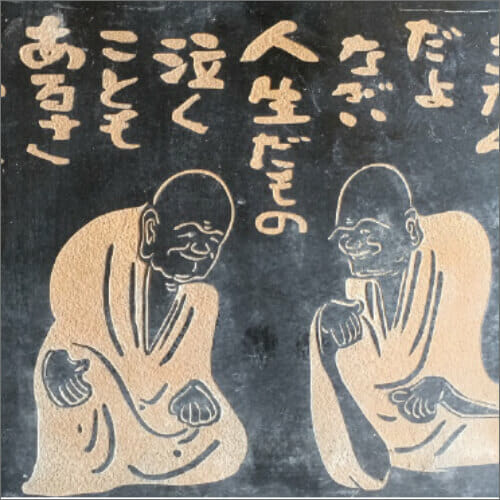 だよ
人生だもの
泣く
ことも
あるさ